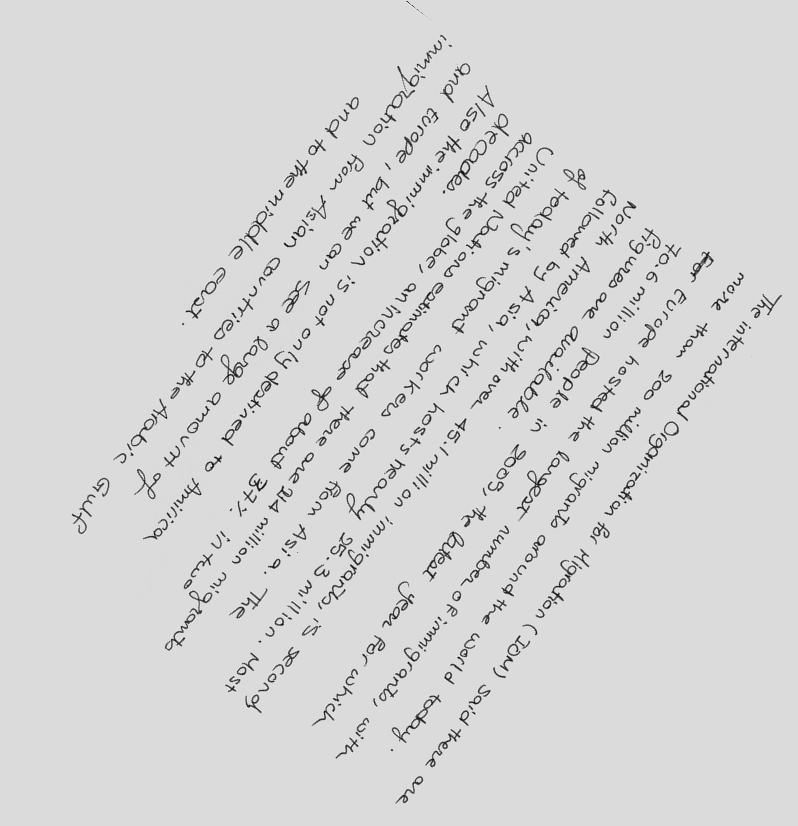 The international Organization for Migration (IOM) said there are
more than 200 million migrants around the world today.
Europe hosted the largest number of immigrants, with
70.6 million people in 2005, the latest year for which
figures are available.
North America, with over 45.1 million immigrants, is second,
followed by Asia, which hosts nearly 25.3 million. Most
of today's migrant workers come from Asia. The
United Nations estimates that there are 214 million migrants
accross the globe, an increase of about 37% in two
decades.
Also the immigration is not only destined to Amirica
and Europe, but we can see a large amount of
immigration from Asian countries to the Arabic Gulf
and to the middle east.